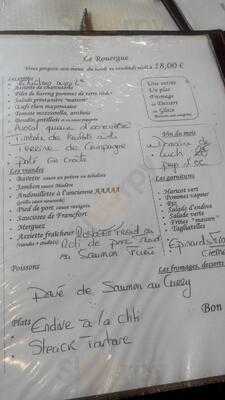 Le Rouergue
Vous propose son menu du lundi au vendredi midi à 18,00 €
Les entrées
Assiette de charcuterie
Filet de hareng pommes de terre tiède
Salade printanière "maison"
Œufs durs mayonnaise
Tomate mozzarella, anchois
Avocat queue d'écrevisse
Terrine de Campagne
Paté en Croute
Une entrée
Un plat
Fromage
ou Dessert
ou Glace
Boissons non comprises
Vin du mois
Les viandes
Bavette sauce au poivre ou échalote
Jambon sauce Madère
Andouillette à l'ancienne AAAAA
Pied de porc sauce ravigote
Saucisses de Francfort
Merguez
Assiette fraîcheur
Rosbeef froid ou
Roti de porc froid
ou Saumon Fumé
Les garnitures
Haricot vert
Pommes vapeur
Riz
Salade d'endive
Salade verte
Frites "maison"
Tagliatelles
Epinards
Crème
Poissons
Les fromages, desserts
Pavé de Saumon au Curry
Plats
Bon
Endive à la Chti
Steack Tartare